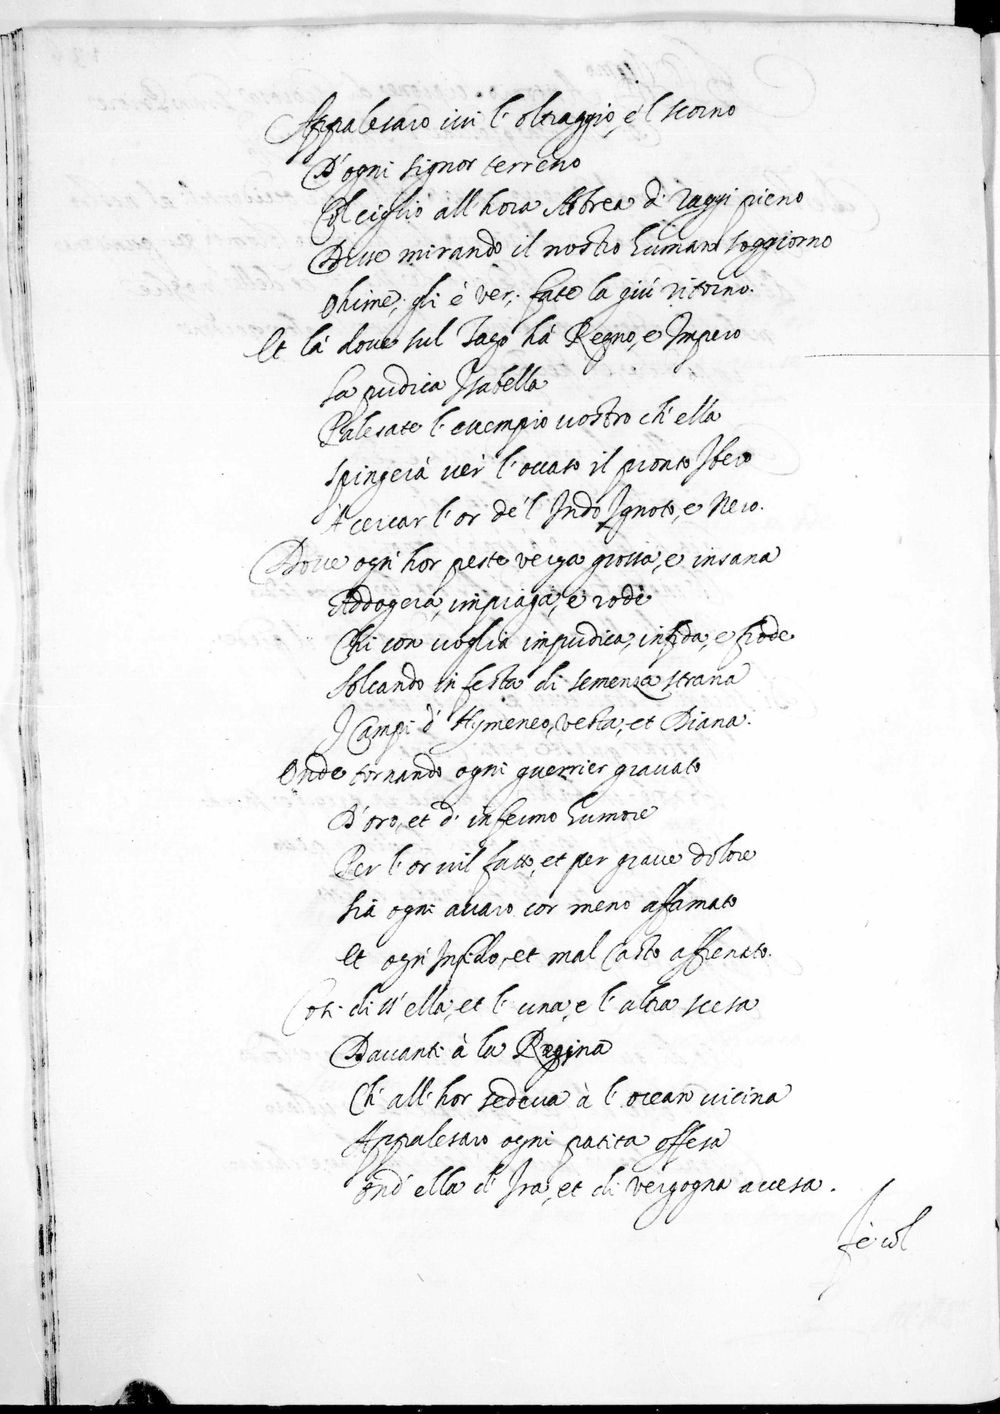 Appalesaro iui l'oltraggio, e'l scorno
D'ogni signor terreno
Col ciglio all'hora Astrea di raggi pieno
Disse mirando il nostro humano soggiorno
Ohime, gli è ver, fate la giù ritorno.
Et là doue sul Tago hà Regno, e Impero
La pudica Isabella
Palesate l'essempio uostro ch'ella
Spingerà uer l'occaso il pronto Ibero
A cercar l'or de l'Indo Ignoto, e Nero.
Doue ogn'hor peste verga grossa, e insana
Addogera, impiaga, e rode
Chi con uoglia impudica, infida, e frode
Solcando infesta di semenza strana
I Campi d'Hymeneo, Vesta, et Diana.
Onde tornando ogni guerrier grauato
D'oro, et d'infermo humore
Per l'or uil fatto, et per graue dolore
Sià ogni auaro cor meno affamato
Et ogn'Infido, et mal Casto affrenato.
Così diss'ella, et l'una, e l'altra scesa
Dauanti à la Regina
Ch'all'hor sedeua à l'ocean uicina
Appalesaro ogni patita offesa
Ond'ella d'Ira, et di vergogna accesa.
Fè col